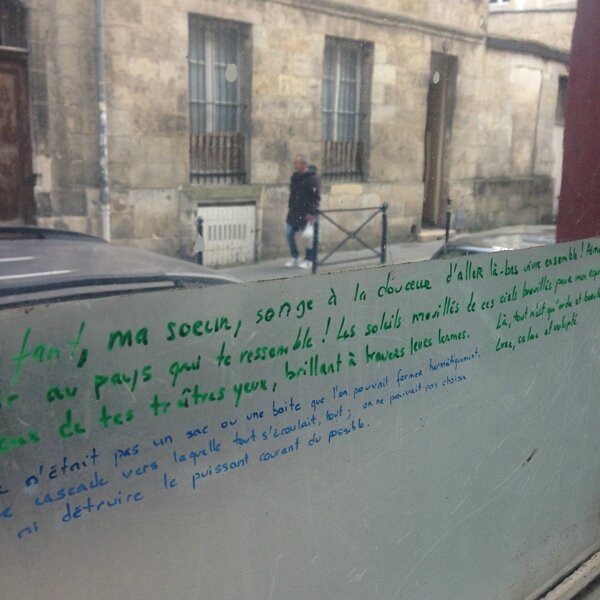 fant, ma soeur, songe à la douceur d'aller là-bas vivre ensemble !
au pays qui te ressemble ! Les soleils mouillés de ces ciels brouillés pour mon esprit
de tes traîtres yeux, brillant à travers leurs larmes.
Là, tout n'est qu'ordre et beauté
Luxe, calme et volupté.
n'était pas un sac ou une boite que l'on pouvait fermer hermétiquement,
cascade vers laquelle tout s'écoulait, tout ; on ne pouvait pas choisir
ni détruire le puissant courant du possible.